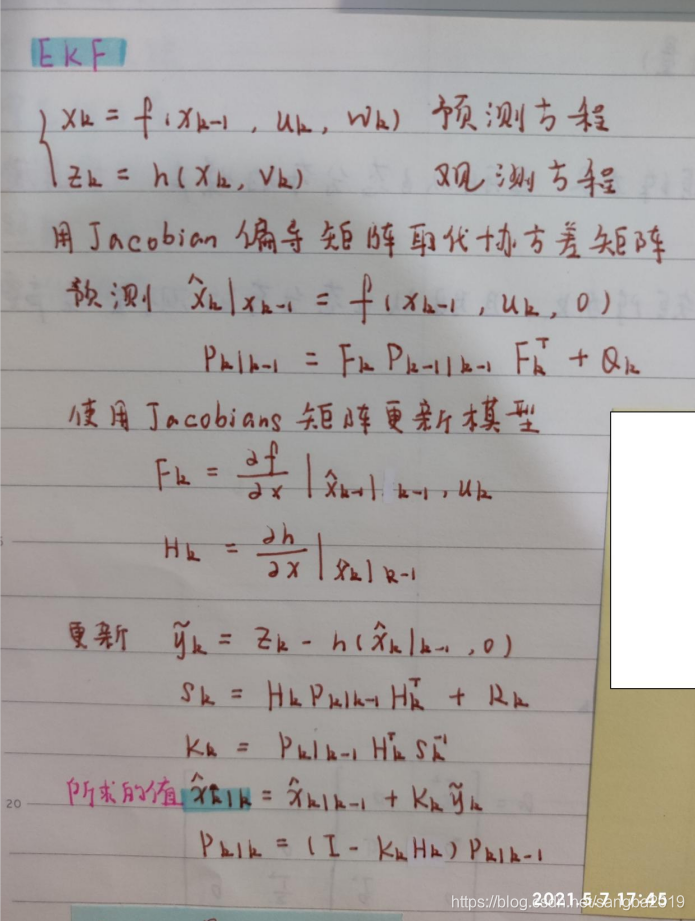 EKF
x_k = f(x_{k-1}, u_k, w_k) 预测方程
z_k = h(x_k, v_k) 观测方程
用Jacobian偏导矩阵取代协方差矩阵
预测 x̂_k|x_{k-1} = f(x_{k-1}, u_k, 0)
P_{k|k-1} = F_k P_{k-1|k-1} F_k^T + Q_k
使用Jacobians矩阵更新模型
F_k = ∂f/∂x | x̂_{k-1|k-1}, u_k
H_k = ∂h/∂x | x̂_{k|k-1}
更新 ỹ_k = z_k - h(x̂_{k|k-1}, 0)
S_k = H_k P_{k|k-1} H_k^T + R_k
K_k = P_{k|k-1} H_k^T S_k^{-1}
所求的值 x̂_{k|k} = x̂_{k|k-1} + K_k ỹ_k
20
P_{k|k} = (I - K_k H_k) P_{k|k-1}
2021.5.7 17:45